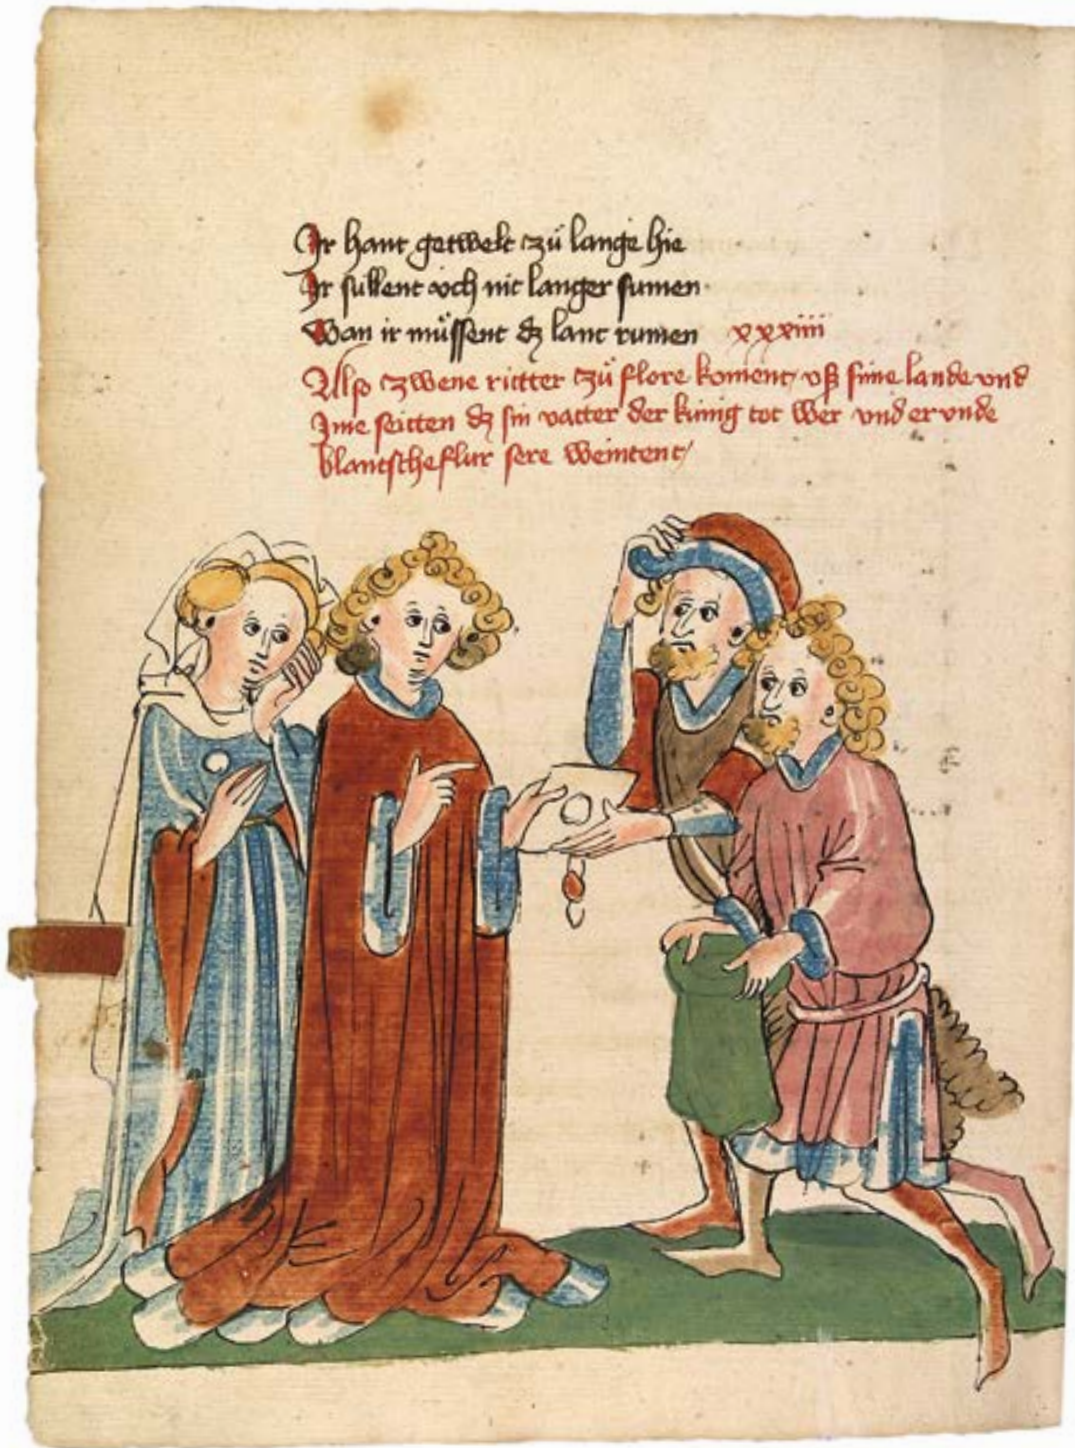 Ir hant getwelt zů lange hie
Ir sullent och nit langer sumen
Wan ir můssent dz lant rumen xxxiiii
Also zwene ritter zů flore koment vß sime lande vnd
Ime seitten dz sin vatter der kúnig tot wer vnd er vnde
blantscheflur sere weintent/